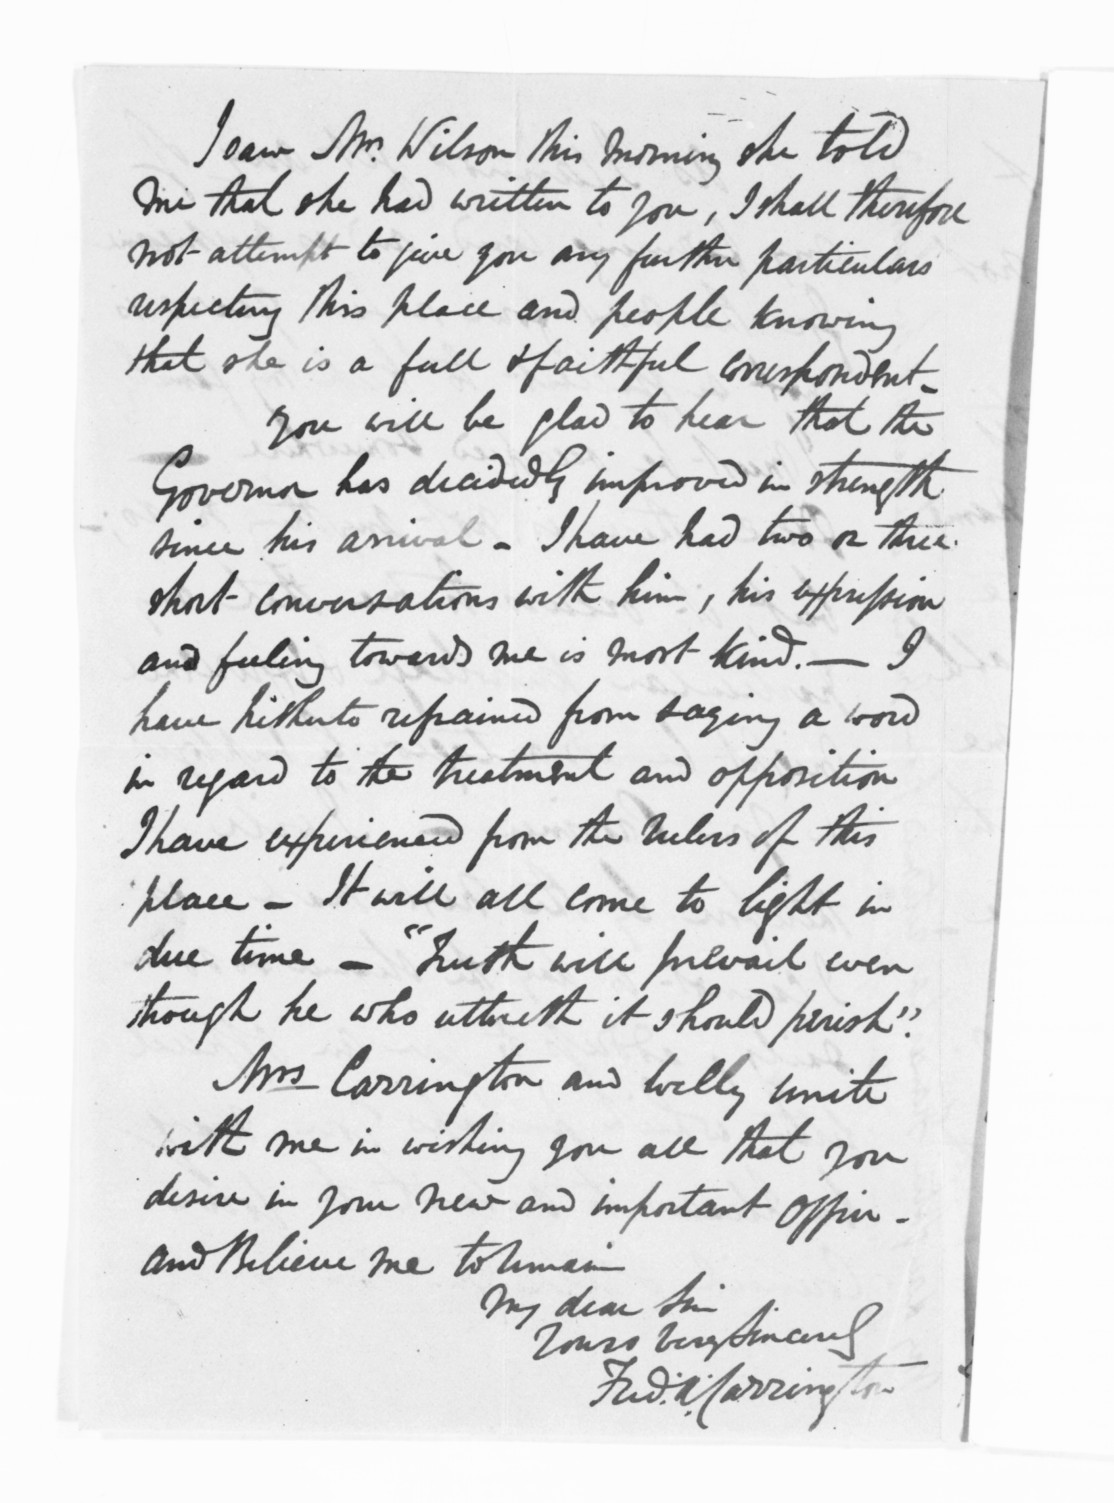 I saw Mrs. Wilson this morning she told
me that she had written to you, I shall therefore
not attempt to give you any further particulars
respecting this place and people knowing
that she is a full & faithful correspondent -
You will be glad to hear that the
Governor has decidedly improved in strength
since his arrival - I have had two or three
short conversations with him, his expression
and feeling towards me is most kind. — I
have hitherto refrained from saying a word
in regard to the treatment and opposition
I have experienced from the rulers of this
place - It will all come to light in
due time - "Truth will prevail even
though he who uttereth it should perish".
Mrs Carrington and Willy unite
with me in wishing you all that you
desire in your new and important Office -
and Believe me to remain
My dear Sir
Yours very Sincerely
Fred. A. Carrington